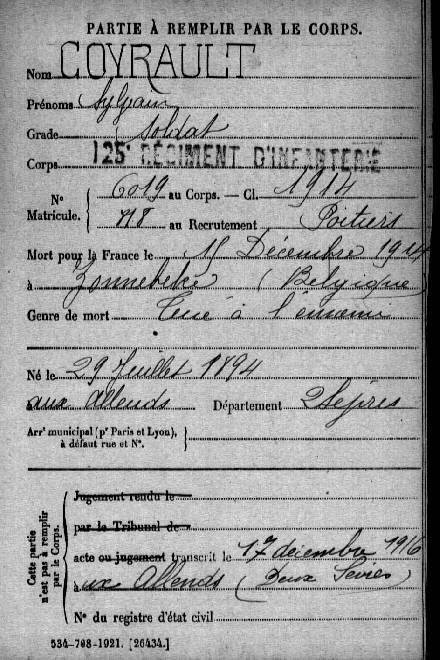 PARTIE À REMPLIR PAR LE CORPS.
Nom COYRAULT
Prénoms Sylvain
Grade Soldat
Corps 125e RÉGIMENT D'INFANTERIE
No Matricule. 6019 au Corps. — Cl. 1914
718 au Recrutement Poitiers
Mort pour la France le 15 Décembre 1914
à Zonnebeke (Belgique)
Genre de mort Tué à l'ennemi
Né le 29 Juillet 1894
aux Alleuds Département 2 Sèvres
Arrt municipal (pr Paris et Lyon), à défaut rue et No.
Cette partie n'est pas à remplir par le Corps.
Jugement rendu le
par le Tribunal de
acte ou jugement transcrit le 17 décembre 1916
aux Alleuds (Deux Sèvres)
No du registre d'état civil
534-708-1921. [26434.]